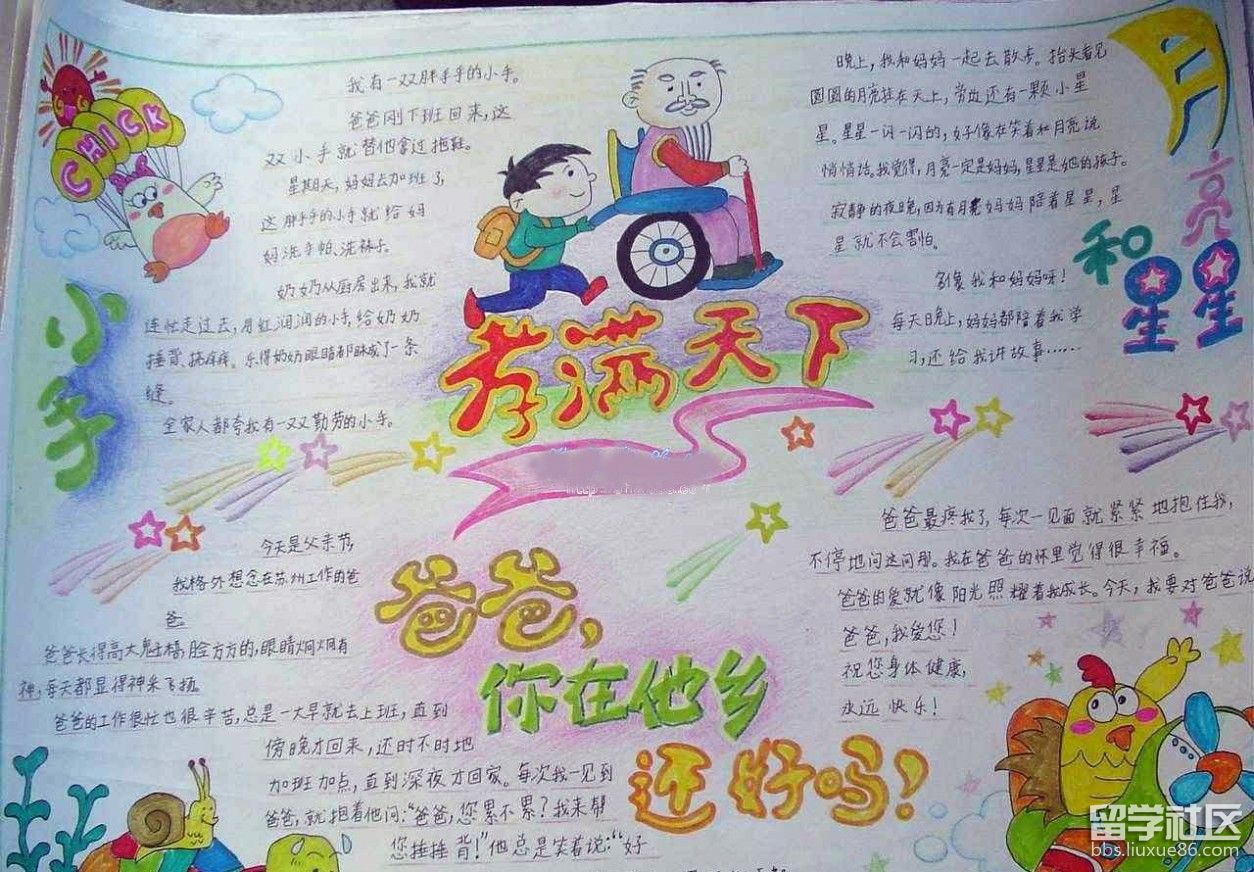 CHICK
小手
我有一双胖手手的小手。
爸爸刚下班回来,这
双小手就替他拿过拖鞋。
星期天,妈妈去加班了,
这胖手手的小手就给妈
妈洗手帕、洗袜子。
奶奶从厨房出来,我就
连忙走过去,用红润润的小手,给奶奶
捶背、挠痒痒。乐得奶奶眼睛都眯成了一条
缝。
全家人都夸我有一双勤劳的小手。
孝满天下
月亮和星星
晚上,我和妈妈一起去散步。抬头看见
圆圆的月亮挂在天上,旁边还有一颗小星
星。星星一闪一闪的,好像在笑着和月亮说
悄悄话。我觉得,月亮一定是妈妈,星星是她的孩子。
寂静的夜晚,因为有月亮妈妈陪着星星,星
星就不会害怕。
多像我和妈妈呀!
每天日晚上,妈妈都陪着我学
习,还给我讲故事……
爸爸,
你在他乡
还好吗?
今天是父亲节,
我格外想念在苏州工作的爸
爸。
爸爸长得高大魁梧,脸方方的,眼睛炯炯有
神,每天都显得神采飞扬。
爸爸的工作很忙也很辛苦,总是一大早就去上班,直到
傍晚才回来,还时不时地
加班加点,直到深夜才回家。每次我一见到
爸爸,就抱着他问:“爸爸,您累不累?我来帮
您捶捶背!”他总是笑着说:“好
爸爸最疼我了,每次一见面就紧紧地抱住我,
不停地问这问那。我在爸爸的怀里觉得很幸福。
爸爸的爱就像阳光照耀着我成长。今天,我要对爸爸说
爸爸,我爱您!
祝您身体健康,
永远快乐!
留学社区
bbs.liuxue86.com